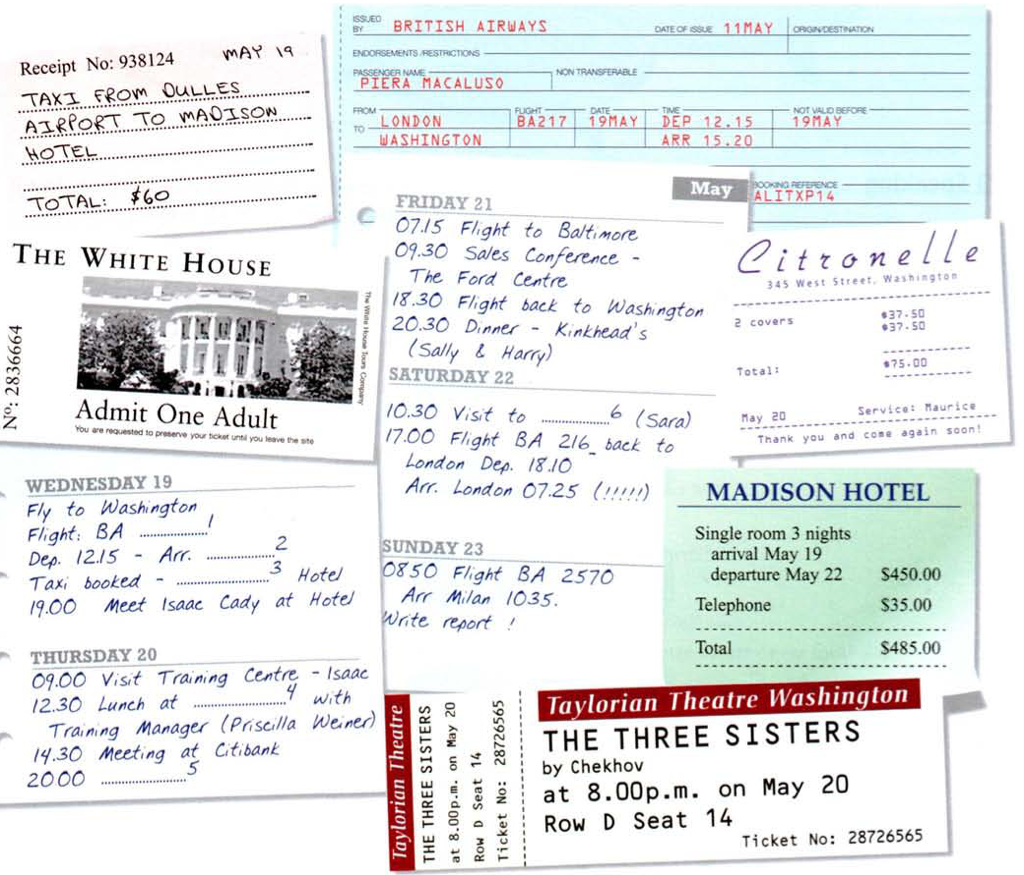 Receipt No: 938124 MAY 19
TAXI FROM DULLES
AIRPORT TO MADISON
HOTEL
TOTAL: $60
ISSUED BY BRITISH AIRWAYS DATE OF ISSUE 11MAY ORIGIN/DESTINATION
ENDORSEMENTS/RESTRICTIONS
PASSENGER NAME NON TRANSFERABLE
PIERA MACALUSO
FROM LONDON FLIGHT BA217 DATE 19MAY TIME DEP 12.15 NOT VALID BEFORE 19MAY
TO WASHINGTON ARR 15.20
BOOKING REFERENCE
ALITXP14
THE WHITE HOUSE
The White House Tours Company
Nº: 2836664
Admit One Adult
You are requested to preserve your ticket until you leave the site
May
FRIDAY 21
07.15 Flight to Baltimore
09.30 Sales Conference -
The Ford Centre
18.30 Flight back to Washington
20.30 Dinner - Kinkhead's
(Sally & Harry)
SATURDAY 22
10.30 Visit to ..................6 (Sara)
17.00 Flight BA 216 back to
London Dep. 18.10
Arr. London 07.25 (!!!!!)
SUNDAY 23
0850 Flight BA 2570
Arr Milan 1035.
Write report !
Citronelle
345 West Street, Washington
2 covers $37.50
$37.50
Total: $75.00
May 20 Service: Maurice
Thank you and come again soon!
WEDNESDAY 19
Fly to Washington
Flight: BA ..................1
Dep. 12.15 - Arr. ..................2
Taxi booked - ..................3 Hotel
19.00 Meet Isaac Cady at Hotel
THURSDAY 20
09.00 Visit Training Centre - Isaac
12.30 Lunch at ..................4 with
Training Manager (Priscilla Weiner)
14.30 Meeting at Citibank
2000 ..................5
MADISON HOTEL
Single room 3 nights
arrival May 19
departure May 22 $450.00
Telephone $35.00
Total $485.00
Taylorian Theatre
THE THREE SISTERS
at 8.00p.m. on May 20
Row D Seat 14
Ticket No: 28726565
Taylorian Theatre Washington
THE THREE SISTERS
by Chekhov
at 8.00p.m. on May 20
Row D Seat 14
Ticket No: 28726565